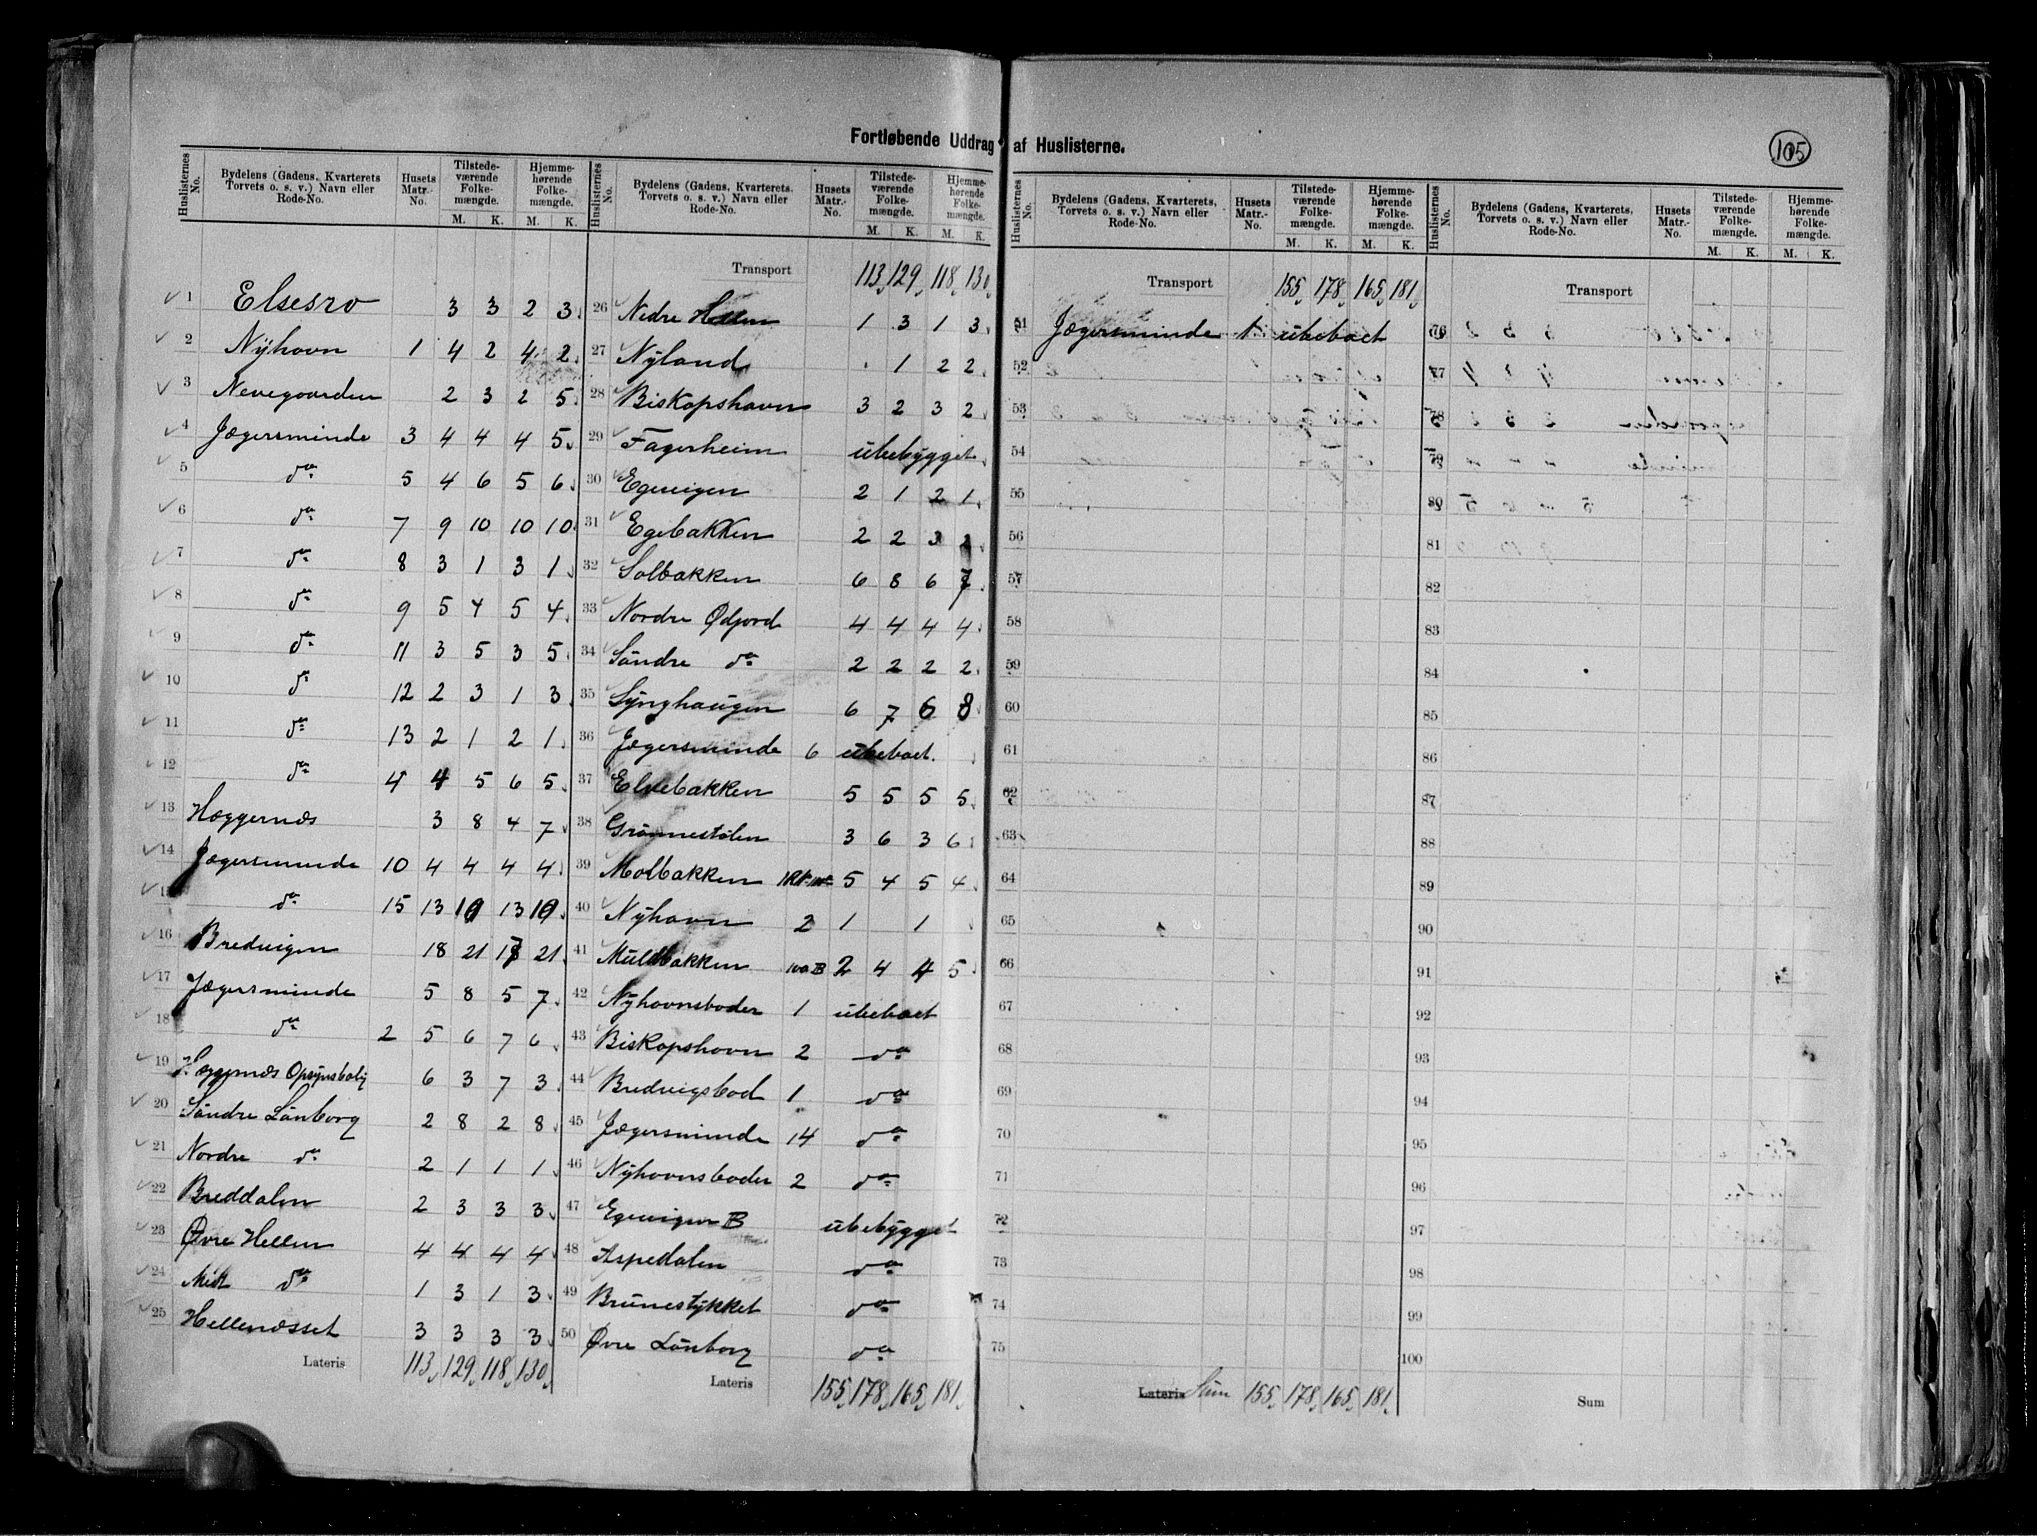 Fortløbende Uddrag af Huslisterne.
105
Huslisternes No. Bydelens (Gadens, Kvarterets Torvets o. s. v.) Navn eller Rode-No. Husets Matr.-No. Tilstedeværende Folkemængde. M. K. Hjemmehørende Folkemængde. M. K.
1 Elsesro 3 3 2 3
2 Nÿhavn 1 4 2 4 2
3 Nevegaarden 2 3 2 5
4 Jægersminde 3 4 4 4 5
5 do 5 4 6 5 6
6 do 7 9 10 10 10
7 do 8 3 1 3 1
8 do 9 5 4 5 4
9 do 11 3 5 3 5
10 do 12 2 3 1 3
11 do 13 2 1 2 1
12 do 4 4 5 6 5
13 Hæggernæs 3 8 4 7
14 Jægersminde 10 4 4 4 4
15 do 15 13 10 13 10
16 Bredvigen 18 21 21
17 Jægersminde 5 8 5 7
18 do 2 5 6 7 6
19 Hæggernæs Opsÿnsbolig 6 3 7 3
20 Söndre Lönborg 2 8 2 8
21 Nordre do 2 1 1 1
22 Breddalen 2 3 3 3
23 Øvre Hellen 4 4 4 4
24 Midt do 1 3 1 3
25 Hellenæsset 3 3 3 3
Lateris 113 129 118 130
Huslisternes No. Bydelens (Gadens, Kvarterets, Torvets o. s. v.) Navn eller Rode-No. Husets Matr.-No. Tilstedeværende Folkemængde. M. K. Hjemmehørende Folkemængde. M. K.
Transport 113 129 118 130
26 Nedre Hellen 1 3 1 3
27 Nÿland 1 2 2
28 Biskopshavn 3 2 3 2
29 Fagerheim ubebÿgget
30 Egevigen 2 1 2 1
31 Egebakken 2 2 3 2
32 Solbakken 6 8 6 7
33 Nordre Ødjord 4 4 4 4
34 Söndre do 2 2 2 2
35 Sÿnghaugen 6 7 6 8
36 Jægersminde 6 ubeboet.
37 Elvebakken 5 5 5 5
38 Grönnestölen 3 6 3 6
39 Molbakken 5 4 5 4
40 Nÿhavn 2 1 1
41 Muldbakken 100B 2 4 4 5
42 Nÿhavnsboder 1 ubeboet
43 Biskopshavn 2 do
44 Bredvigsbod 1 do
45 Jægersminde 14 do
46 Nÿhavnsboder 2 do
47 Egevigen B ubebÿgget
48 Aspedalen do
49 Brunestÿkket do
50 Øvre Lönborg do
Lateris 155 178 165 181
Huslisternes No. Bydelens (Gadens, Kvarterets, Torvets o. s. v.) Navn eller Rode-No. Husets Matr.-No. Tilstedeværende Folkemængde. M. K. Hjemmehørende Folkemængde. M. K.
Transport 155 178 165 181
51 Jægersminde 1 ubeboet
52
53
54
55
56
57
58
59
60
61
62
63
64
65
66
67
68
69
70
71
72
73
74
75
Lateris Sum 155 178 165 181
Huslisternes No. Bydelens (Gadens, Kvarterets, Torvets o. s. v.) Navn eller Rode-No. Husets Matr.-No. Tilstedeværende Folkemængde. M. K. Hjemmehørende Folkemængde. M. K.
Transport
76
77
78
79
80
81
82
83
84
85
86
87
88
89
90
91
92
93
94
95
96
97
98
99
100
Sum